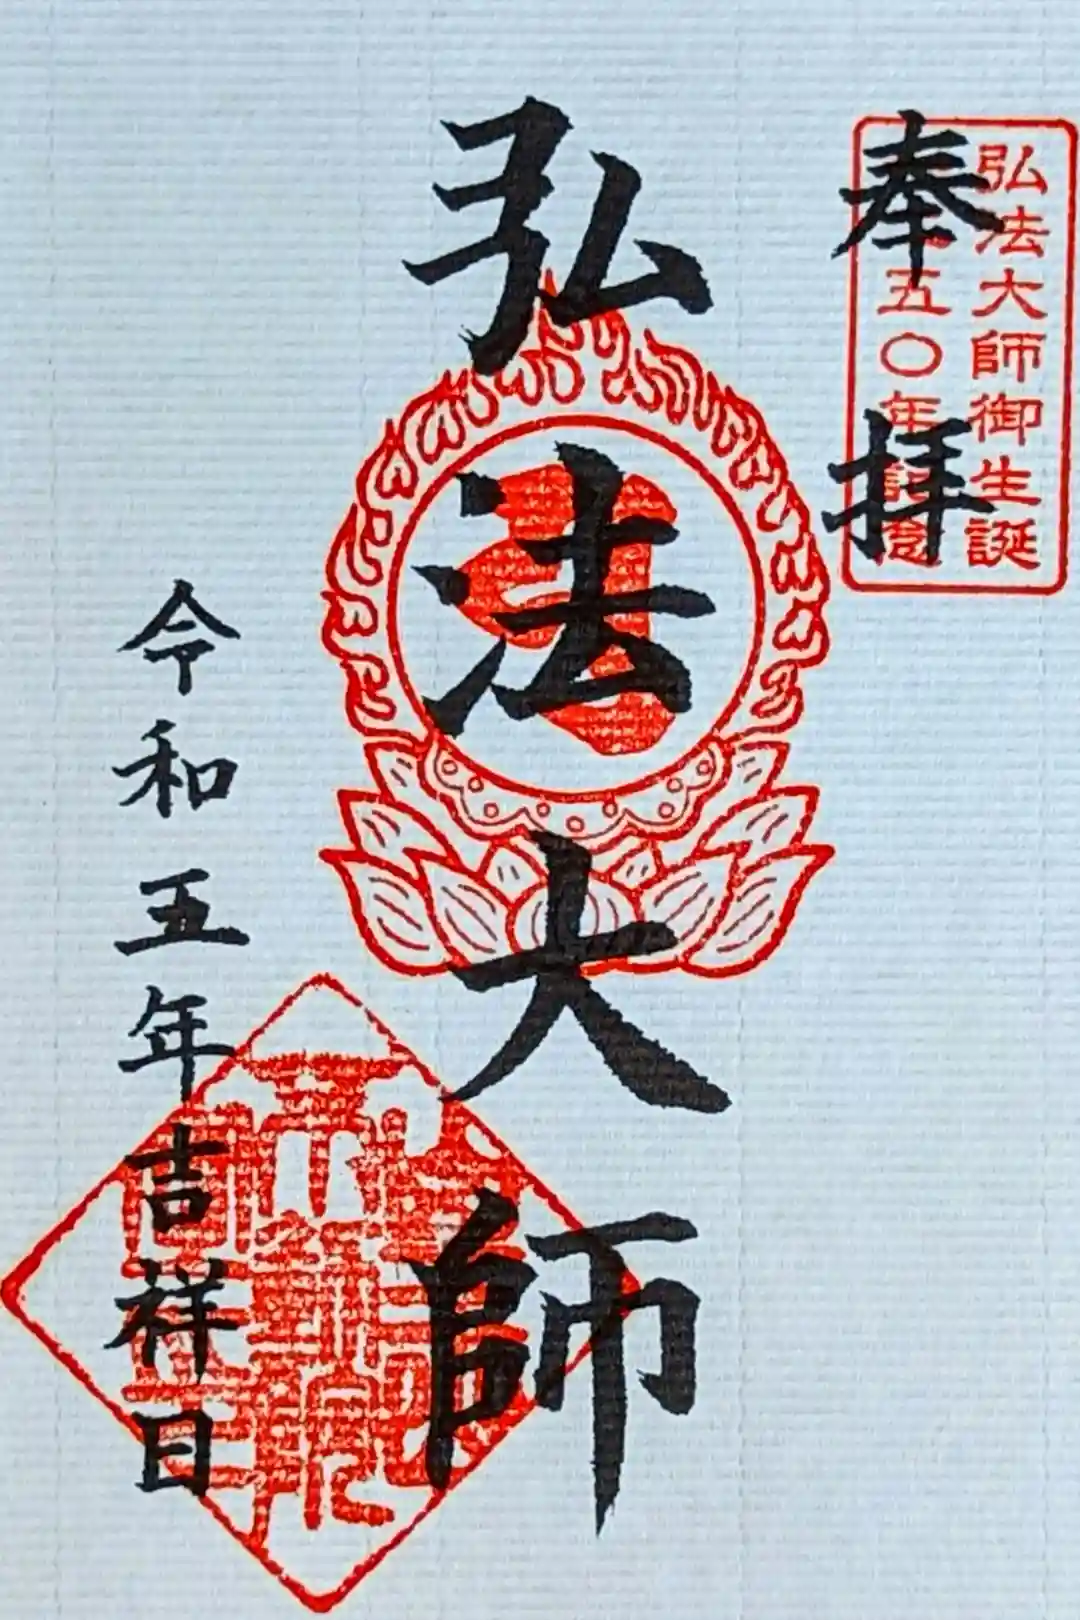 奉拝
弘法大師御生誕
五〇年記念
弘法大師
令和五年吉祥日